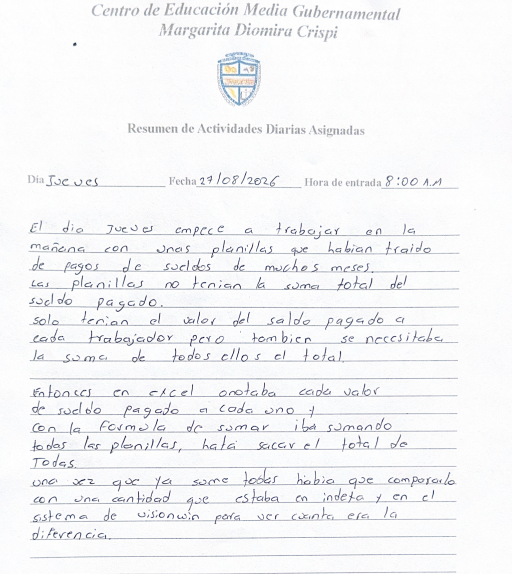 Centro de Educación Media Gubernamental
Margarita Diomira Crispi
Resumen de Actividades Diarias Asignadas
Dia Jueves Fecha 27/08/2026 Hora de entrada 8:00 A.M
El dia Jueves empece a trabajar en la
mañana con unas planillas que habian traido
de pagos de sueldos de muchos meses.
Las planillas no tenian la suma total del
sueldo pagado.
solo tenian el valor del saldo pagado a
cada trabajador pero tambien se necesitaba
la suma de todos ellos el total.
Entonces en excel anotaba cada valor
de sueldo pagado a cada uno y
con la formula de sumar iba sumando
todas las planillas, hata sacar el total de
Todas.
una vez que ya sume todas habia que compararla
con una cantidad que estaba en indeta y en el
sistema de visionwin para ver cuanta era la
diferencia.